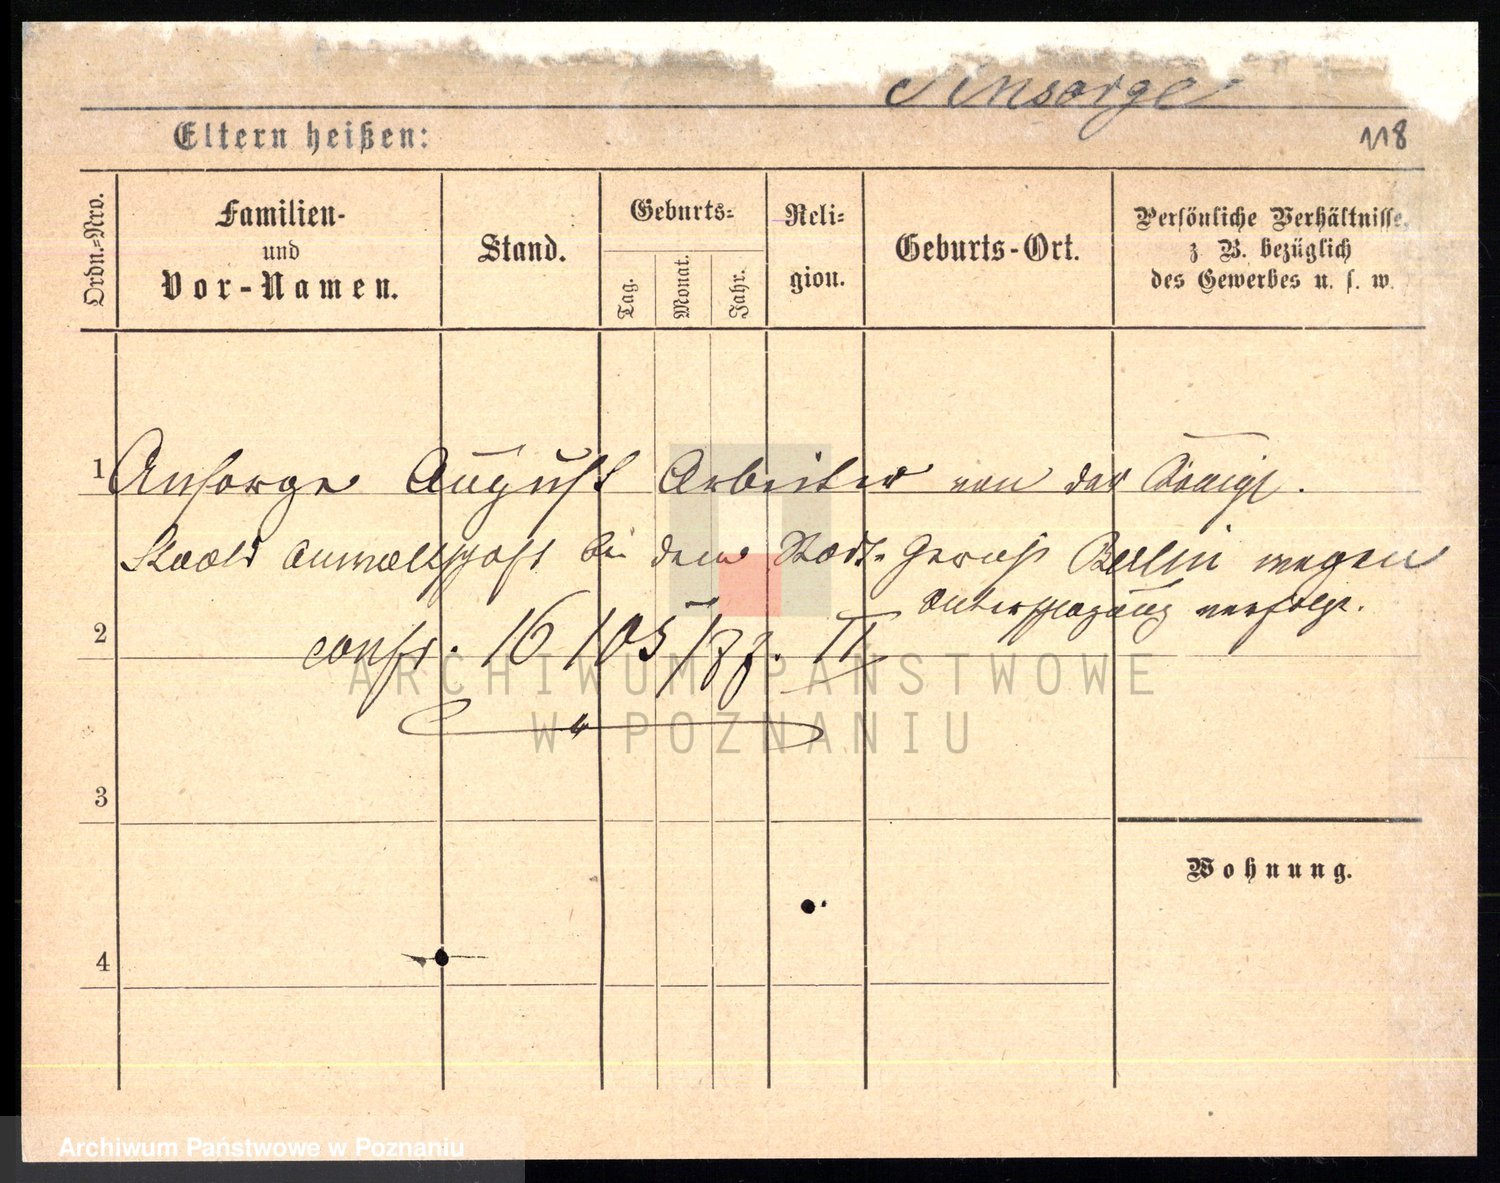 Ansorge
Eltern heißen:
118
Ordn.=Nro.
Familien-
und
Vor-Namen.
Stand.
Geburts=
Tag.
Monat.
Jahr.
Reli=
gion.
Geburts-Ort.
Persönliche Verhältnisse,
z. B. bezüglich
des Gewerbes u. s. w.
1
Ansorge August Arbeiter von der Königl.
Staats Anwaltschaft bei dem Stadt-Gericht Berlin wegen
Unterschlagung verfolgt.
2
confr. 16 105/77. II
3
Wohnung.
4
ARCHIWUM PAŃSTWOWE
W POZNANIU
Archiwum Państwowe w Poznaniu